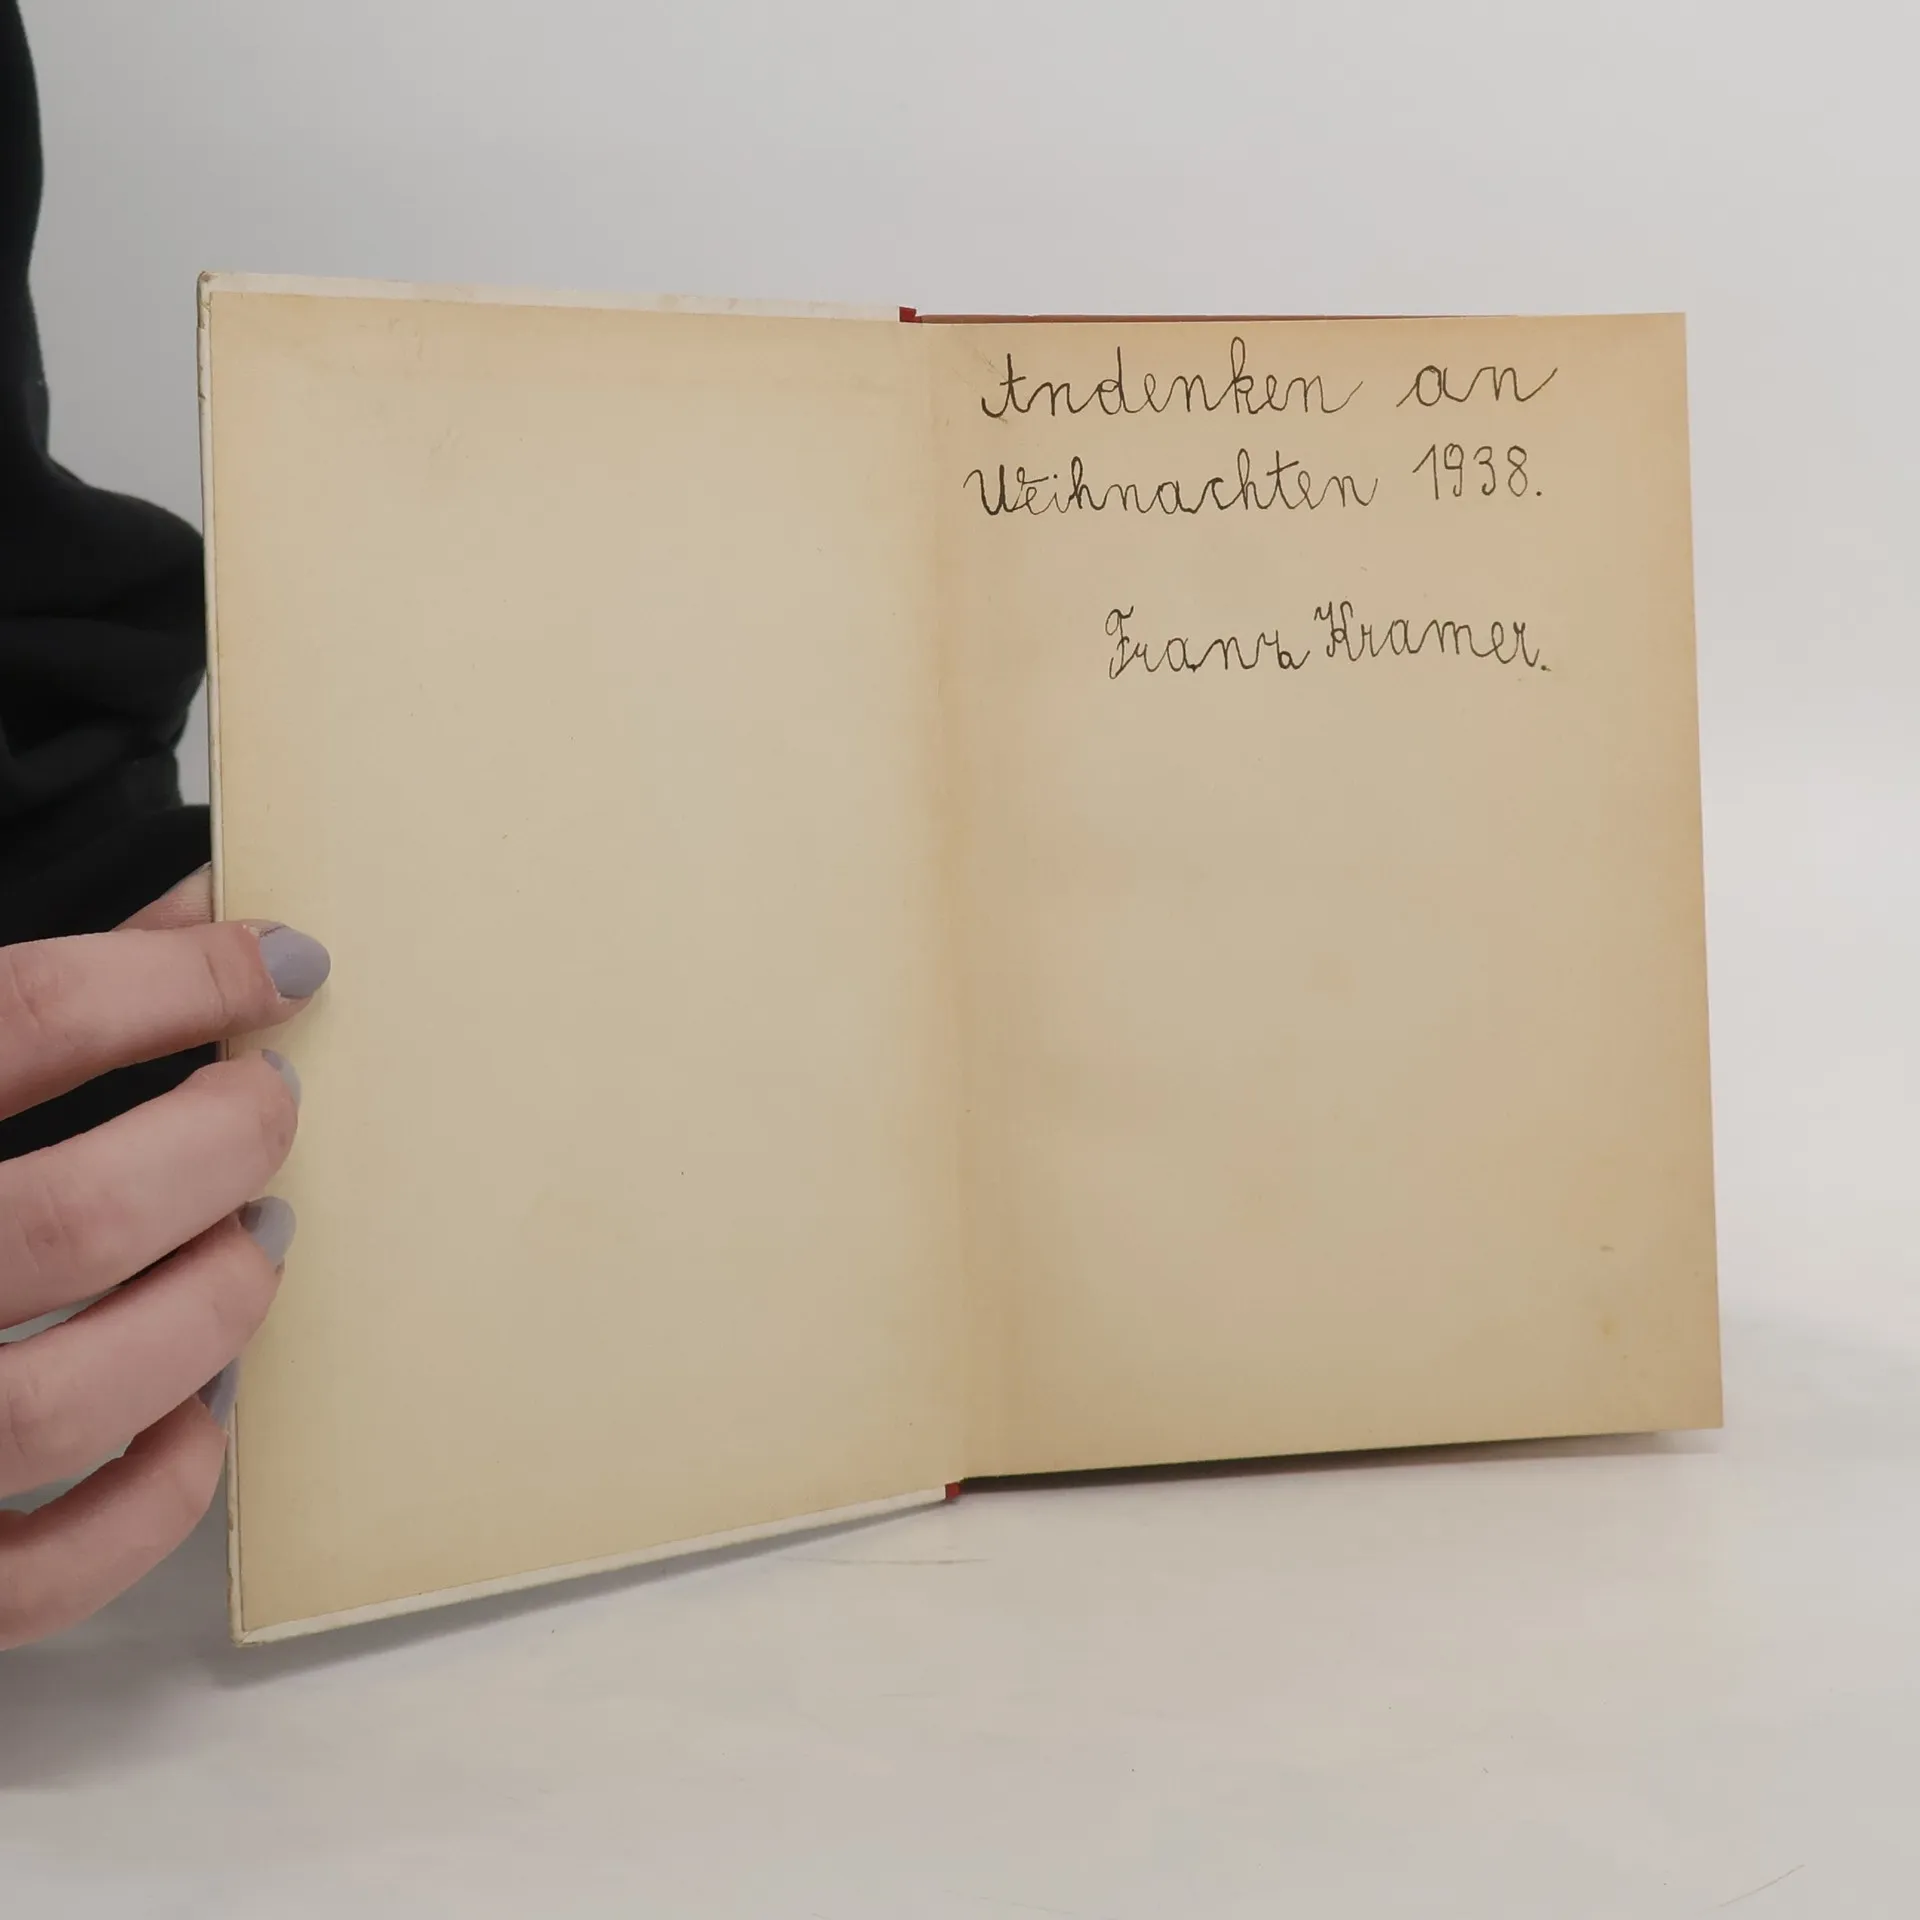 Andenken an
Weihnachten 1938.
Franz Kramer.